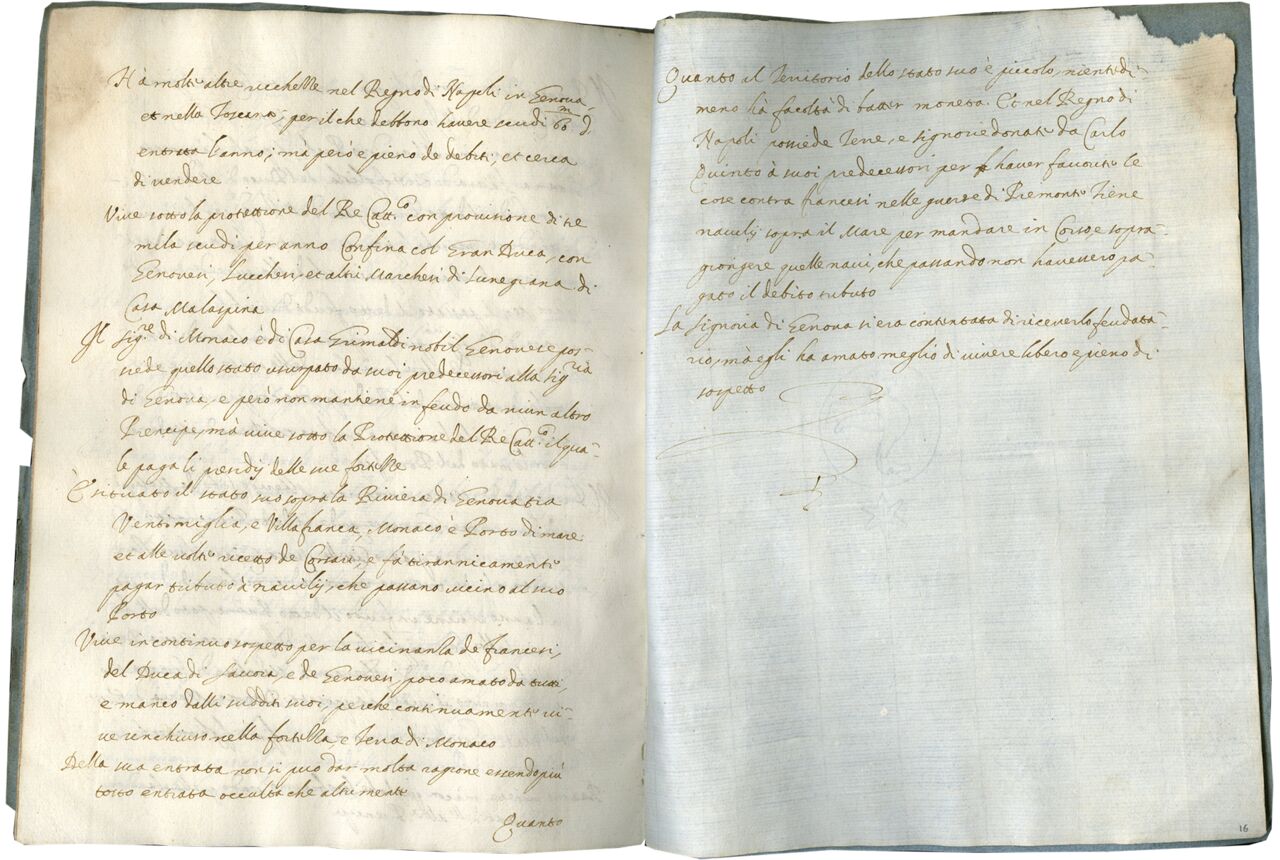 Hà molte altre ricchezze nel Regno di Napoli in Genova,
et nella Toscana, per il che debbono havere scudi 60 m d'
entrata l'anno; mà però e pieno de debiti, et cerca
di vendere
Vive sotto la protettione del Re Catt.co con provisione di tre
mila scudi per anno Confina col Gran Duca, con
Genovesi, Lucchesi, et altri Marchesi di Lunegiana di
Casa Malaspina
Il sig.re di Monaco è di Casa Grimaldi nobil Genovese pos-
siede quello stato usurpato da suoi predecessori alla sig.ria
di Genova, e però non mantiene in feudo da niun altro
Principe, mà vive sotto la Protettione del Re Catt.co il qua-
le paga li presidij delle sue fortezze
È situato il stato suo sopra la Riviera di Genova tra
Ventimiglia, e Villafranca, Monaco è Porto di mare
et alle volte ricetto de Corsari, e fà tirannicamente
pagar tributo à navilij, che passano vicino al suo
Porto
Vive in continuo sospetto per la vicinanza de francesi,
del Duca di Savoia, e de Genovesi, poco amato da tutti,
e manco dalli sudditi suoi, perche continuamente vi-
ve rinchiuso nella fortezza, e Terra di Monaco
Della sua entrata non si può dar molta ragione essendo più
tosto entrata occulta che altrimente
Quanto
Quanto al Territorio dello stato suo è piccolo, niente di-
meno hà facoltà di batter moneta. Et nel Regno di
Napoli possiede Terre, e signorie donate da Carlo
Quinto à suoi predecessori per haver favorito le
cose contra francesi nelle guerre di Piemonte Tiene
navilij sopra il Mare per mandare in Corso e sopra-
giongere quelle navi, che passando non havessero pa-
gato il debito tributo
La signoria di Genova si era contentata di riceverlo feudata-
rio, mà egli ha amato meglio di vivere libero e pieno di
sospetto
16